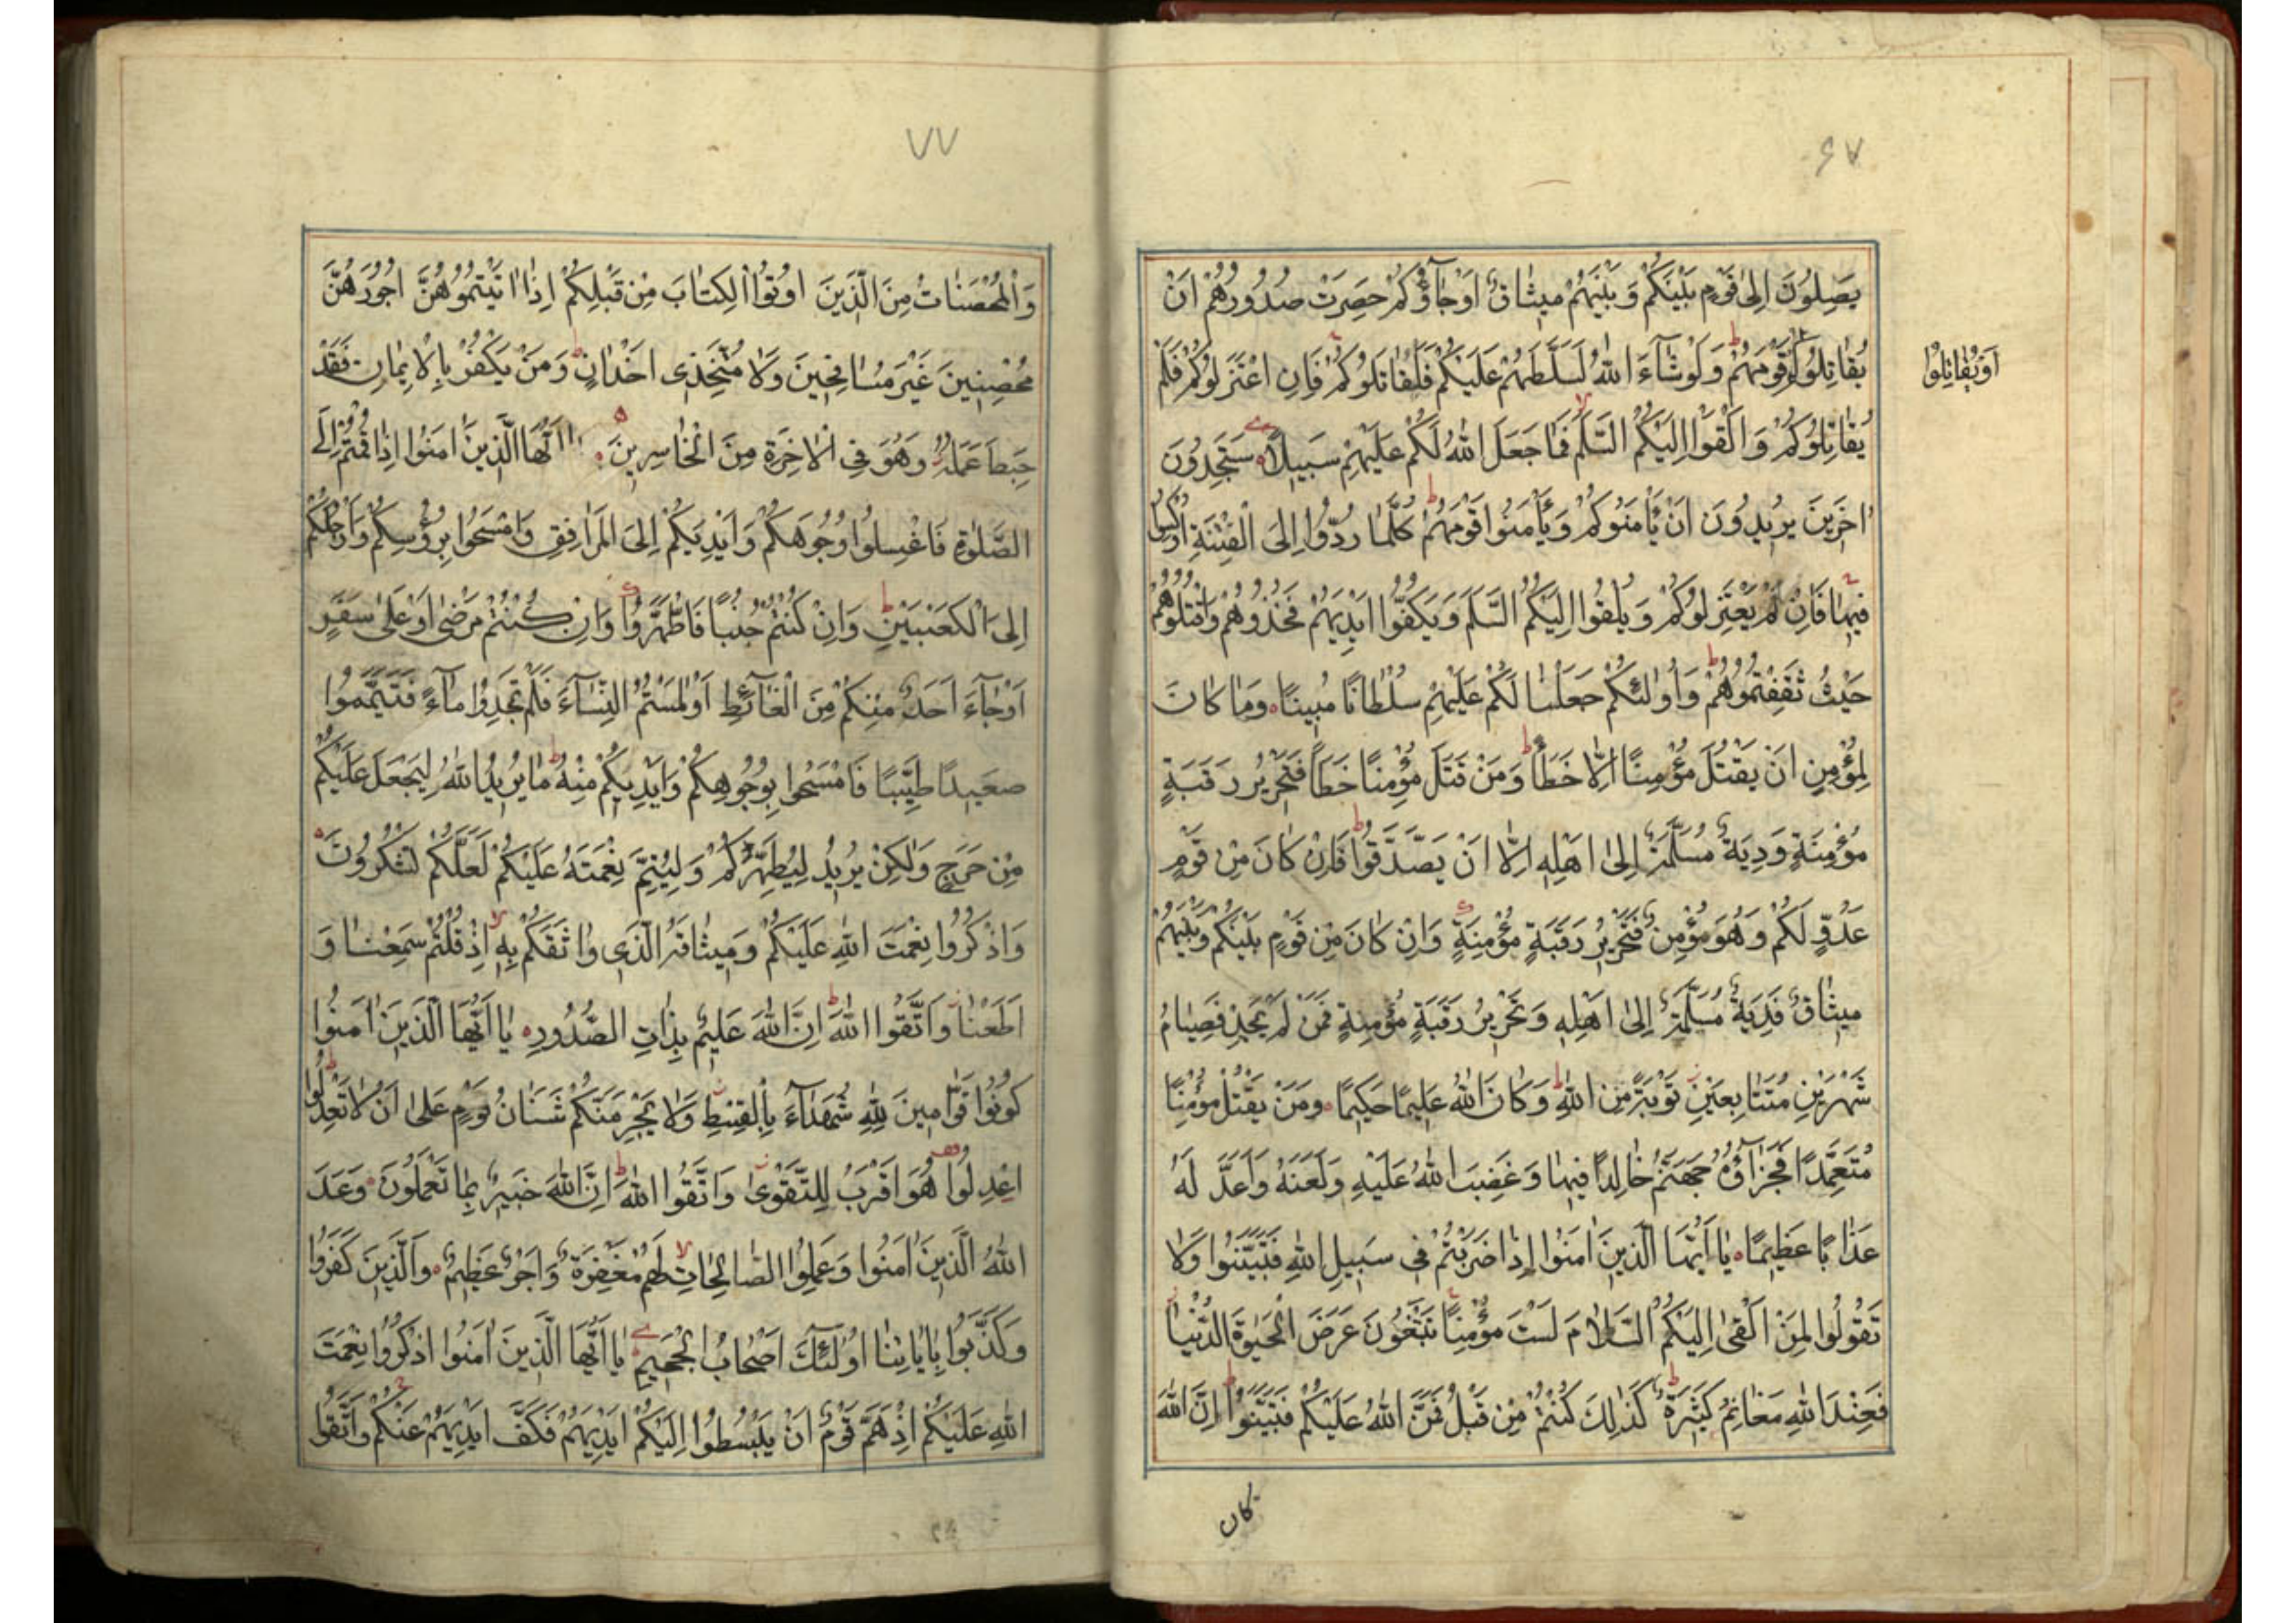 ۶۷
يَصِلُونَ اِلىٰ قَوْمٍ بَيْنَكُمْ وَ بَيْنَهُمْ ميثاقٌ اَوْجاؤُكُمْ حَصِرَتْ صُدُورُهُمْ اَنْ
يُقاتِلُوكُمْ قَوْمَهُمْ وَلَوْشاءَ اللهُ لَسَلَّطَهُمْ عَلَيْكُمْ فَلَقاتَلُوكُمْ فَاِنِ اعْتَزَلُوكُمْ فَلَمْ
اَوْيُقاتِلُوا
يُقاتِلُوكُمْ وَ اَلْقَوْا اِلَيْكُمُ السَّلَمَ فَما جَعَلَ اللهُ لَكُمْ عَلَيْهِمْ سَبيلاً سَتَجِدُونَ
اخَرينَ يُريدُونَ اَنْ يَأْمَنُوكُمْ وَيَأْمَنُوا قَوْمَهُمْ كُلَّما رُدُّوا اِلَى الْفِتْنَةِ اُرْكِسُوا
فيها فَاِنْ لَمْ يَعْتَزِلُوكُمْ وَ يُلْقُوا اِلَيْكُمُ السَّلَمَ وَ يَكُفُّوا اَيْدِيَهُمْ فَخُذُوهُمْ وَاقْتُلُوهُمْ
حَيْثُ ثَقِفْتُمُوهُمْ وَ اُولٰئِكُمْ جَعَلْنا لَكُمْ عَلَيْهِمْ سُلْطانًا مُبينًا وَما كانَ
لِمُؤْمِنٍ اَنْ يَقْتُلَ مُؤْمِنًا اِلّا خَطَأً وَمَنْ قَتَلَ مُؤْمِنًا خَطَأً فَتَحْريرُ رَقَبَةٍ
مُؤْمِنَةٍ وَدِيَةٌ مُسَلَّمَةٌ اِلىٰ اَهْلِهِ اِلّا اَنْ يَصَّدَّقُوا فَاِنْ كانَ مِنْ قَوْمٍ
عَدُوٍّ لَكُمْ وَهُوَ مُؤْمِنٌ فَتَحْريرُ رَقَبَةٍ مُؤْمِنَةٍ وَاِنْ كانَ مِنْ قَوْمٍ بَيْنَكُمْ وَبَيْنَهُمْ
ميثاقٌ فَدِيَةٌ مُسَلَّمَةٌ اِلىٰ اَهْلِهِ وَتَحْريرُ رَقَبَةٍ مُؤْمِنَةٍ فَمَنْ لَمْ يَجِدْ فَصِيامُ
شَهْرَيْنِ مُتَتابِعَيْنِ تَوْبَةً مِنَ اللهِ وَكانَ اللهُ عَليمًا حَكيمًا وَمَنْ يَقْتُلْ مُؤْمِنًا
مُتَعَمِّدًا فَجَزاؤُهُ جَهَنَّمُ خالِدًا فيها وَغَضِبَ اللهُ عَلَيْهِ وَلَعَنَهُ وَاَعَدَّ لَهُ
عَذابًا عَظيمًا يا اَيُّهَا الَّذينَ امَنُوا اِذا ضَرَبْتُمْ في سَبيلِ اللهِ فَتَبَيَّنُوا وَلا
تَقُولُوا لِمَنْ اَلْقىٰ اِلَيْكُمُ السَّلامَ لَسْتَ مُؤْمِنًا تَبْتَغُونَ عَرَضَ الْحَيوةِ الدُّنْيا
فَعِنْدَ اللهِ مَغانِمُ كَثيرَةٌ كَذٰلِكَ كُنْتُمْ مِنْ قَبْلُ فَمَنَّ اللهُ عَلَيْكُمْ فَتَبَيَّنُوا اِنَّ اللهَ
كان
۷۷
وَالْمُحْصَناتُ مِنَ الَّذينَ اُوتُوا الْكِتابَ مِنْ قَبْلِكُمْ اِذا اتَيْتُمُوهُنَّ اُجُورَهُنَّ
مُحْصِنينَ غَيْرَ مُسافِحينَ وَلا مُتَّخِذي اَخْدانٍ وَمَنْ يَكْفُرْ بِالْايمانِ فَقَدْ
حَبِطَ عَمَلُهُ وَهُوَ فِي الْاخِرَةِ مِنَ الْخاسِرينَ يا اَيُّهَا الَّذينَ امَنُوا اِذا قُمْتُمْ اِلَى
الصَّلوةِ فَاغْسِلُوا وُجُوهَكُمْ وَاَيْدِيَكُمْ اِلَى الْمَرافِقِ وَامْسَحُوا بِرُؤُسِكُمْ وَاَرْجُلَكُمْ
اِلَى الْكَعْبَيْنِ وَاِنْ كُنْتُمْ جُنُبًا فَاطَّهَّرُوا وَاِنْ كُنْتُمْ مَرْضىٰ اَوْ عَلىٰ سَفَرٍ
اَوْجاءَ اَحَدٌ مِنْكُمْ مِنَ الْغائِطِ اَوْلٰمَسْتُمُ النِّساءَ فَلَمْ تَجِدُوا ماءً فَتَيَمَّمُوا
صَعيدًا طَيِّبًا فَامْسَحُوا بِوُجُوهِكُمْ وَاَيْديكُمْ مِنْهُ ما يُريدُ اللهُ لِيَجْعَلَ عَلَيْكُمْ
مِنْ حَرَجٍ وَلٰكِنْ يُريدُ لِيُطَهِّرَكُمْ وَلِيُتِمَّ نِعْمَتَهُ عَلَيْكُمْ لَعَلَّكُمْ تَشْكُرُونَ
وَاذْكُرُوا نِعْمَتَ اللهِ عَلَيْكُمْ وَميثاقَهُ الَّذي واثَقَكُمْ بِهِ اِذْ قُلْتُمْ سَمِعْنا وَ
اَطَعْنا وَاتَّقُوا اللهَ اِنَّ اللهَ عَليمٌ بِذاتِ الصُّدُورِ يا اَيُّهَا الَّذينَ امَنُوا
كُونُوا قَوّامينَ لِلّٰهِ شُهَداءَ بِالْقِسْطِ وَلا يَجْرِمَنَّكُمْ شَنَانُ قَوْمٍ عَلىٰ اَنْ لا تَعْدِلُوا
اِعْدِلُوا هُوَ اَقْرَبُ لِلتَّقْوىٰ وَاتَّقُوا اللهَ اِنَّ اللهَ خَبيرٌ بِما تَعْمَلُونَ وَعَدَ
اللهُ الَّذينَ امَنُوا وَعَمِلُوا الصّالِحاتِ لَهُمْ مَغْفِرَةٌ وَاَجْرٌ عَظيمٌ وَالَّذينَ كَفَرُوا
وَكَذَّبُوا بِاياتِنا اُولٰئِكَ اَصْحابُ الْجَحيمِ يا اَيُّهَا الَّذينَ امَنُوا اذْكُرُوا نِعْمَتَ
اللهِ عَلَيْكُمْ اِذْ هَمَّ قَوْمٌ اَنْ يَبْسُطُوا اِلَيْكُمْ اَيْدِيَهُمْ فَكَفَّ اَيْدِيَهُمْ عَنْكُمْ وَاتَّقُوا